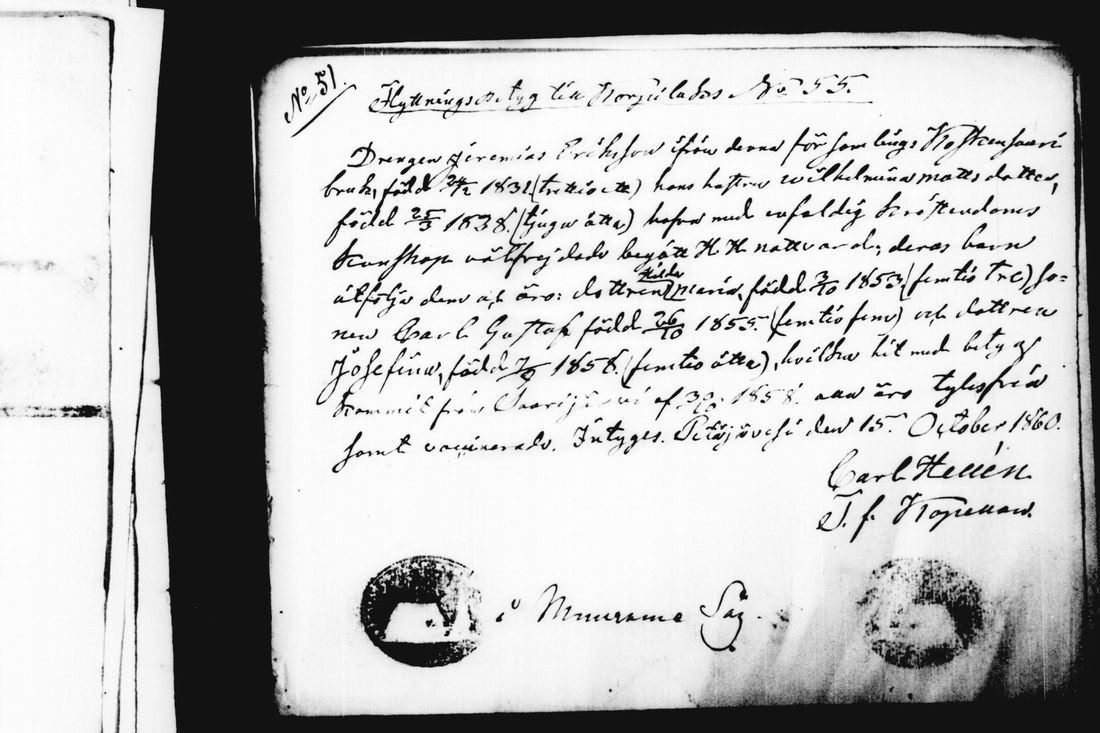 No 51.
Flyttningsbetyg till Korpilaks No 55.
Drengen Jeremias Eriksson ifrån denna församlings Koskensaari
bruk, född 24/2 1831 (trettioett) hans hustru Wilhelmina Mattsdotter,
född 25/3 1828. (tjugu åtta) hafva med enfaldig Kristendoms
kunskap välfrejdade begått H. H. nattvard; deras barn
åtfölja dem och äro: dottren Hilda Maria, född 3/10 1853. (femtio tre) so-
nen Carl Gustaf född 26/10 1855. (femtio fem) och dottren
Josefina, född 7/9 1858. (femtio åtta), hvilka hit med betyg
kommit från Saarijärvi af 1858. äro lytesfria
samt vaccinerade. Intygas. Petäjävesi den 15. October 1860.
Carl Hellén
T. f. Kapellan.
å Muurame Såg.